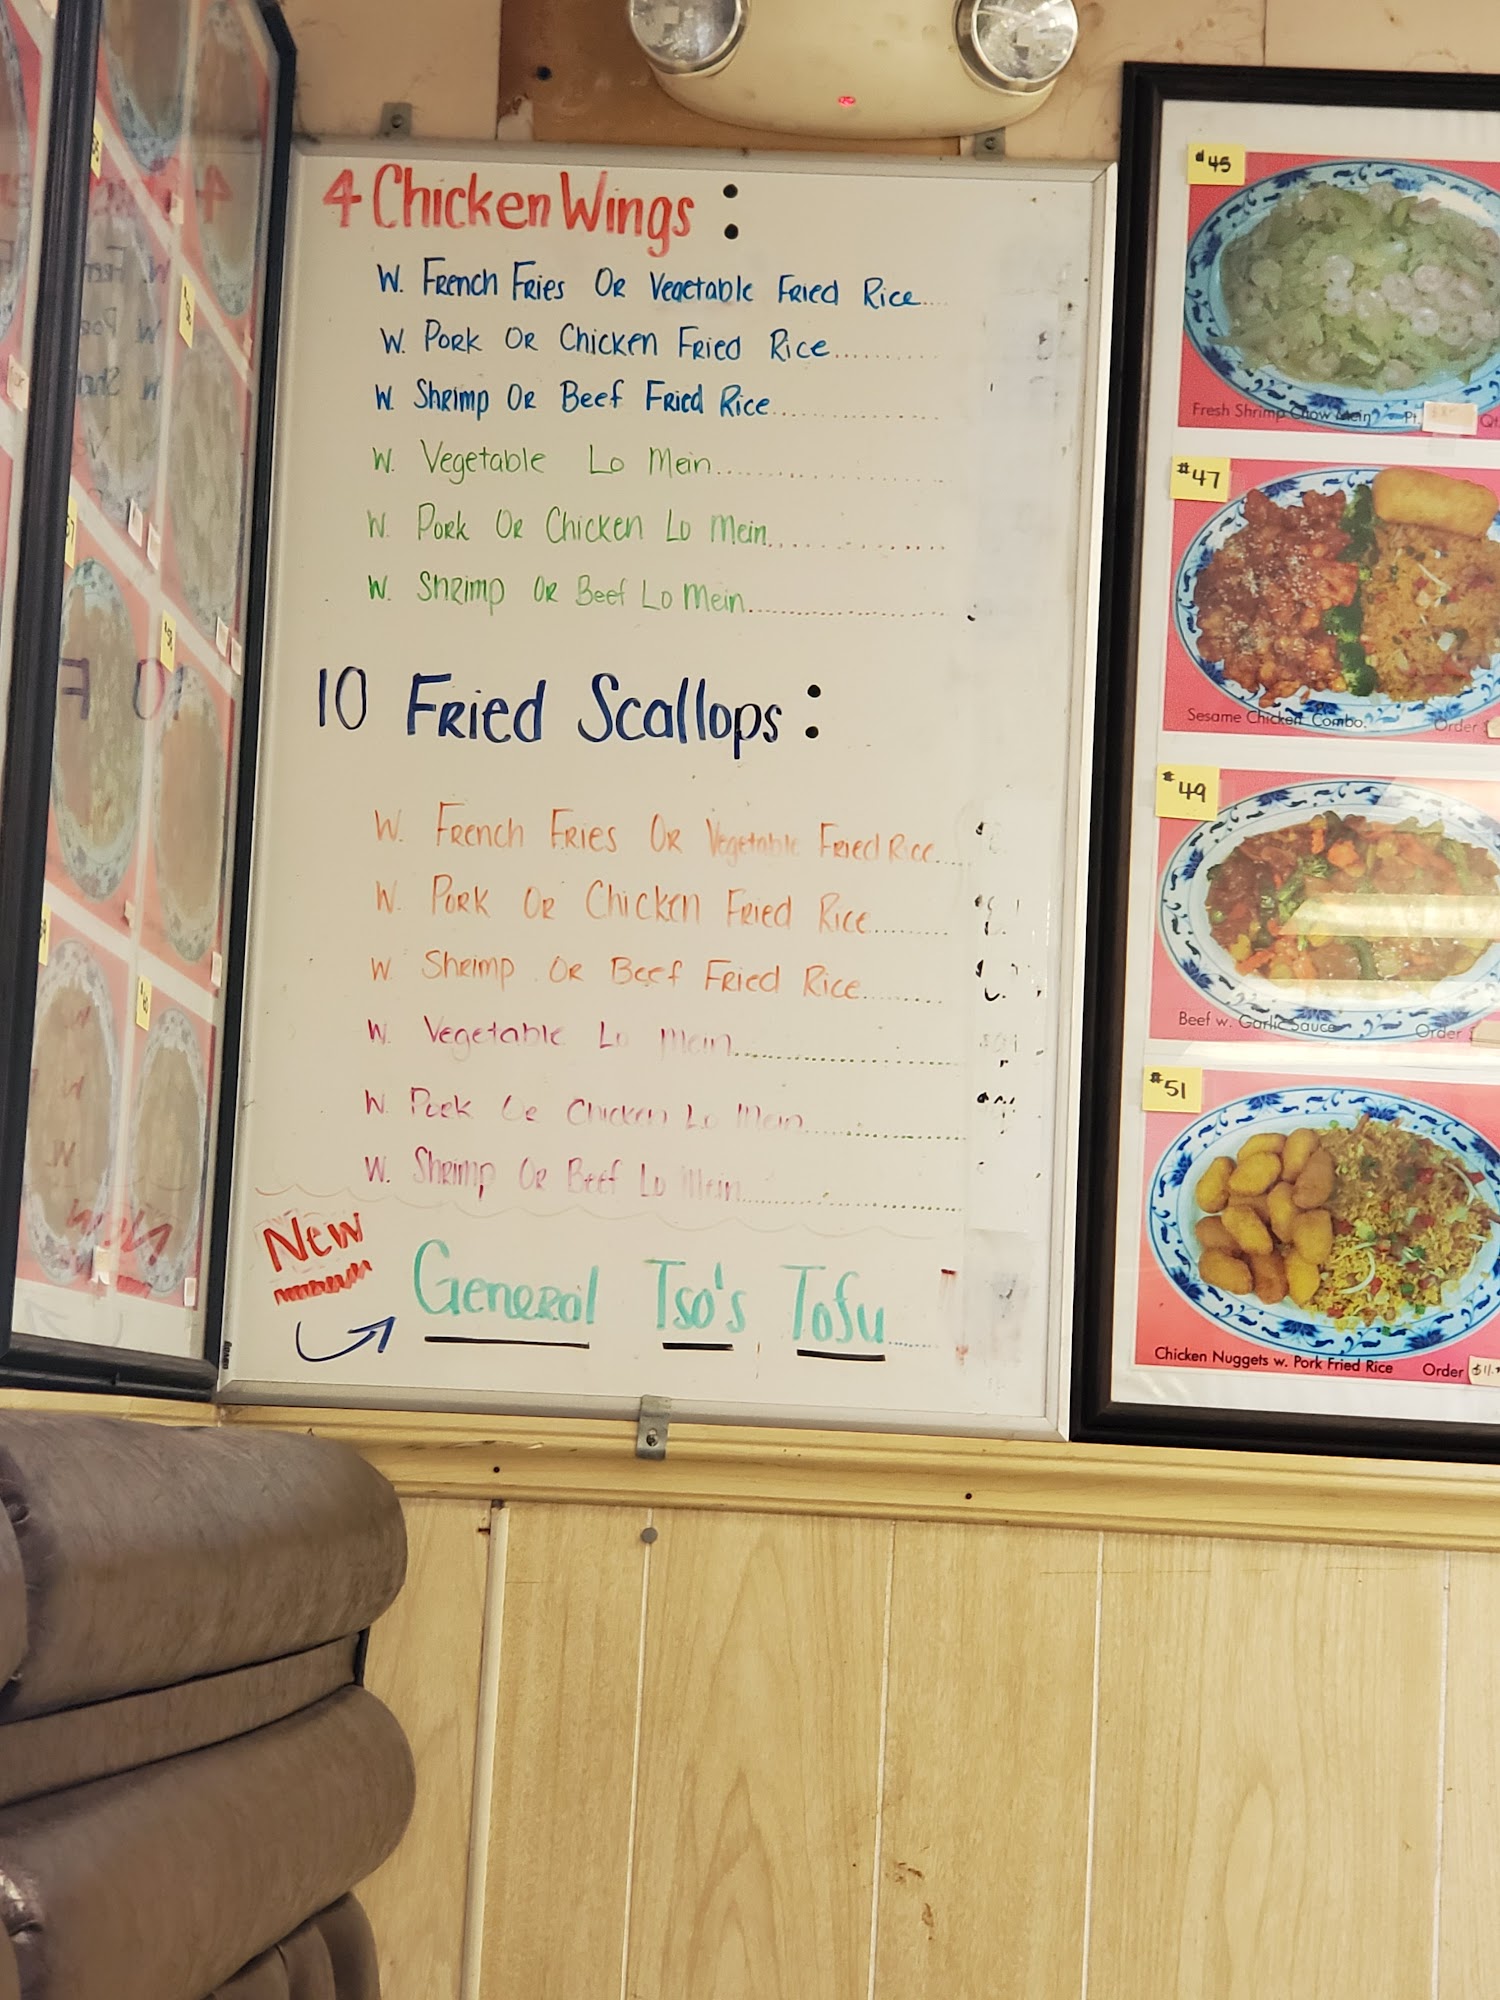 4 Chicken Wings :
W. French Fries Or Vegetable Fried Rice....
W. Pork Or Chicken Fried Rice..........
W. Shrimp Or Beef Fried Rice................
W. Vegetable Lo Mein......................
W. Pork Or Chicken Lo Mein................
W. Shrimp Or Beef Lo Mein......................
10 Fried Scallops :
W. French Fries Or Vegetable Fried Rice.....
W. Pork Or Chicken Fried Rice..........
W. Shrimp Or Beef Fried Rice..........
W. Vegetable Lo Mein........................
W. Pork Or Chicken Lo Mein.................
W. Shrimp Or Beef Lo Mein........................
New
General Tso's Tofu......
#45
Fresh Shrimp Chow Mein Pt. Qt.
#47
Sesame Chicken Combo. Order
#49
Beef w. Garlic Sauce Order
#51
Chicken Nuggets w. Pork Fried Rice Order